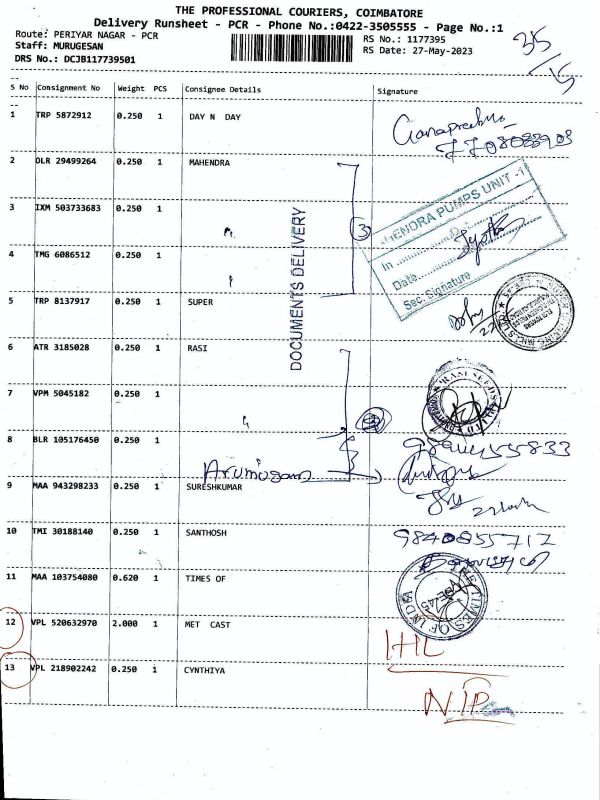 THE PROFESSIONAL COURIERS, COIMBATORE
Delivery Runsheet - PCR - Phone No.:0422-3505555 - Page No.:1
Route: PERIYAR NAGAR - PCR
RS No.: 1177395
Staff: MURUGESAN
RS Date: 27-May-2023
DRS No.: DCJB117739501
35
S No Consignment No Weight PCS Consignee Details Signature
1 TRP 5872912 0.250 1 DAY N DAY
2 OLR 29499264 0.250 1 MAHENDRA
3 IXM 503733683 0.250 1
4 TMG 6086512 0.250 1
DOCUMENTS DELIVERY
3
PUMPS UNIT -1
In
Date
Sec. Signature
5 TRP 8137917 0.250 1 SUPER
6 ATR 3185028 0.250 1 RASI
7 VPM 5045182 0.250 1
8 BLR 105176450 0.250 1
Arumugam
9 MAA 943298233 0.250 1 SURESHKUMAR
10 TMI 30188140 0.250 1 SANTHOSH
9840855712
11 MAA 103754080 0.620 1 TIMES OF
THE TIMES OF INDIA
12 VPL 520632970 2.000 1 MET CAST
13 VPL 218902242 0.250 1 CYNTHIYA